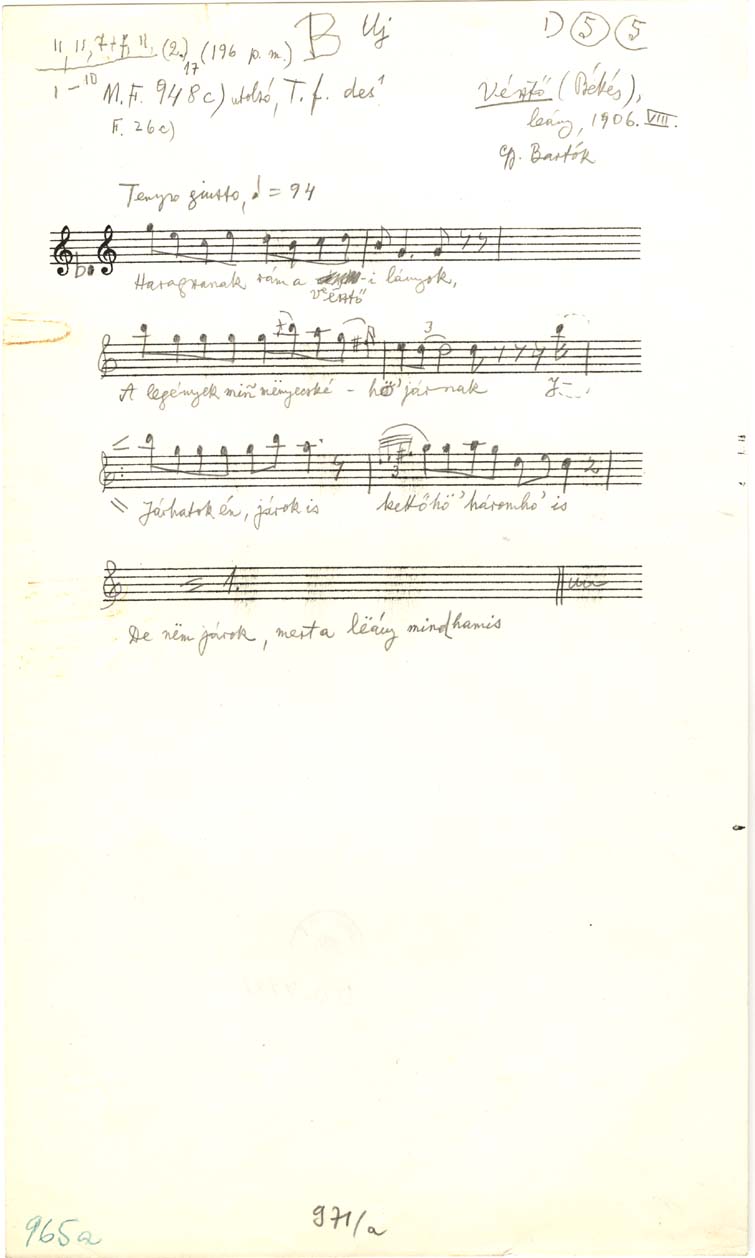 11, 11, 7+7, 11, (2.) (196 p. m.) B Uj 1) 5 5
17
1-10 M.F. 948c) utolsó, T. f. des¹
F. 26c)
Vésztő (Békés),
leány, 1906. VIII.
Gy. Bartók
Tempo giusto, ♩ = 94
Haragszanak rám a vésztő-i lányok,
3
A legények miñ mënyecské - hö' járnak J
3
Járhatok én, járok is kettőhö' háromho' is
1.
De nëm járok, mert a lëány mind hamis
965a
971/a